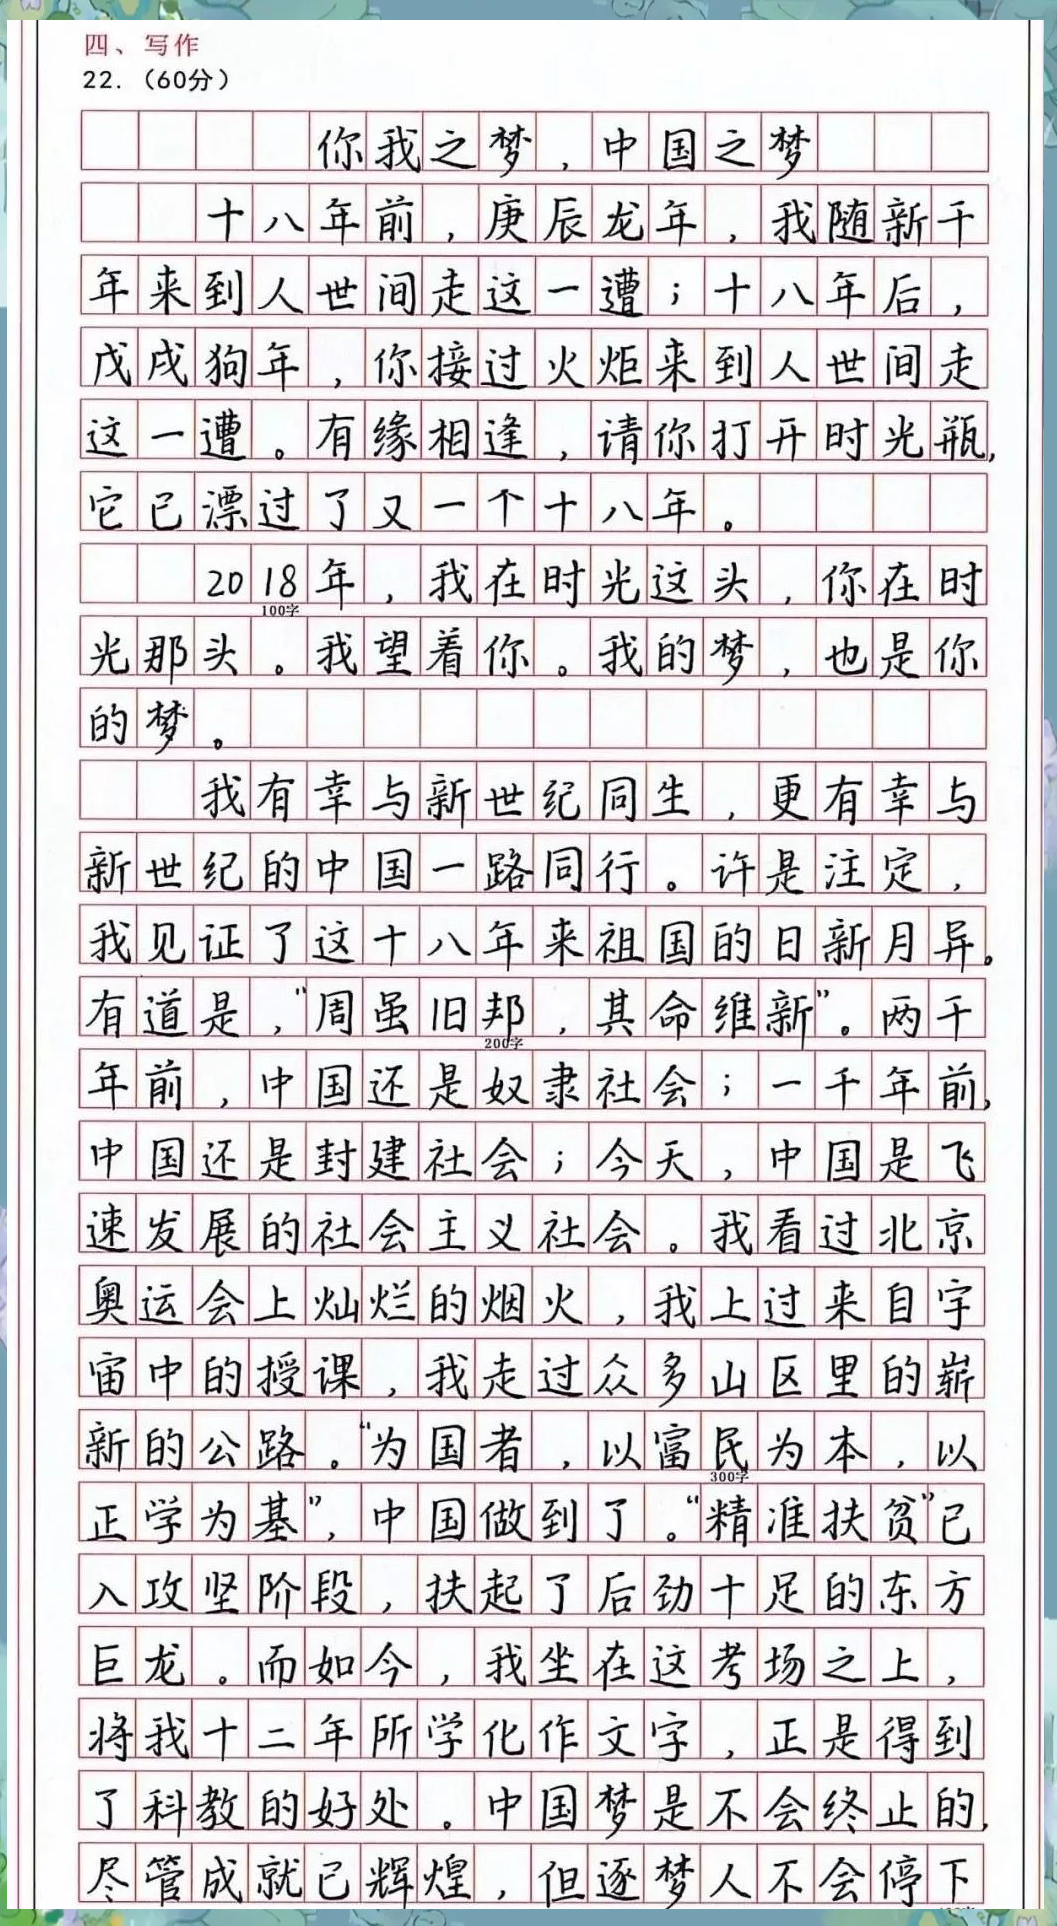 四、写作
22.（60分）
你我之梦，中国之梦
十八年前，庚辰龙年，我随新千
年来到人世间走这一遭；十八年后，
戊戌狗年，你接过火炬来到人世间走
这一遭。有缘相逢，请你打开时光瓶，
它已漂过了又一个十八年。
2018年，我在时光这头，你在时
100字
光那头。我望着你。我的梦，也是你
的梦。
我有幸与新世纪同生，更有幸与
新世纪的中国一路同行。许是注定，
我见证了这十八年来祖国的日新月异。
有道是，“周虽旧邦，其命维新”。两千
200字
年前，中国还是奴隶社会；一千年前，
中国还是封建社会；今天，中国是飞
速发展的社会主义社会。我看过北京
奥运会上灿烂的烟火，我上过来自宇
宙中的授课，我走过众多山区里的崭
新的公路。“为国者，以富民为本，以
300字
正学为基”，中国做到了。“精准扶贫”已
入攻坚阶段，扶起了后劲十足的东方
巨龙。而如今，我坐在这考场之上，
将我十二年所学化作文字，正是得到
了科教的好处。中国梦是不会终止的，
尽管成就已辉煌，但逐梦人不会停下